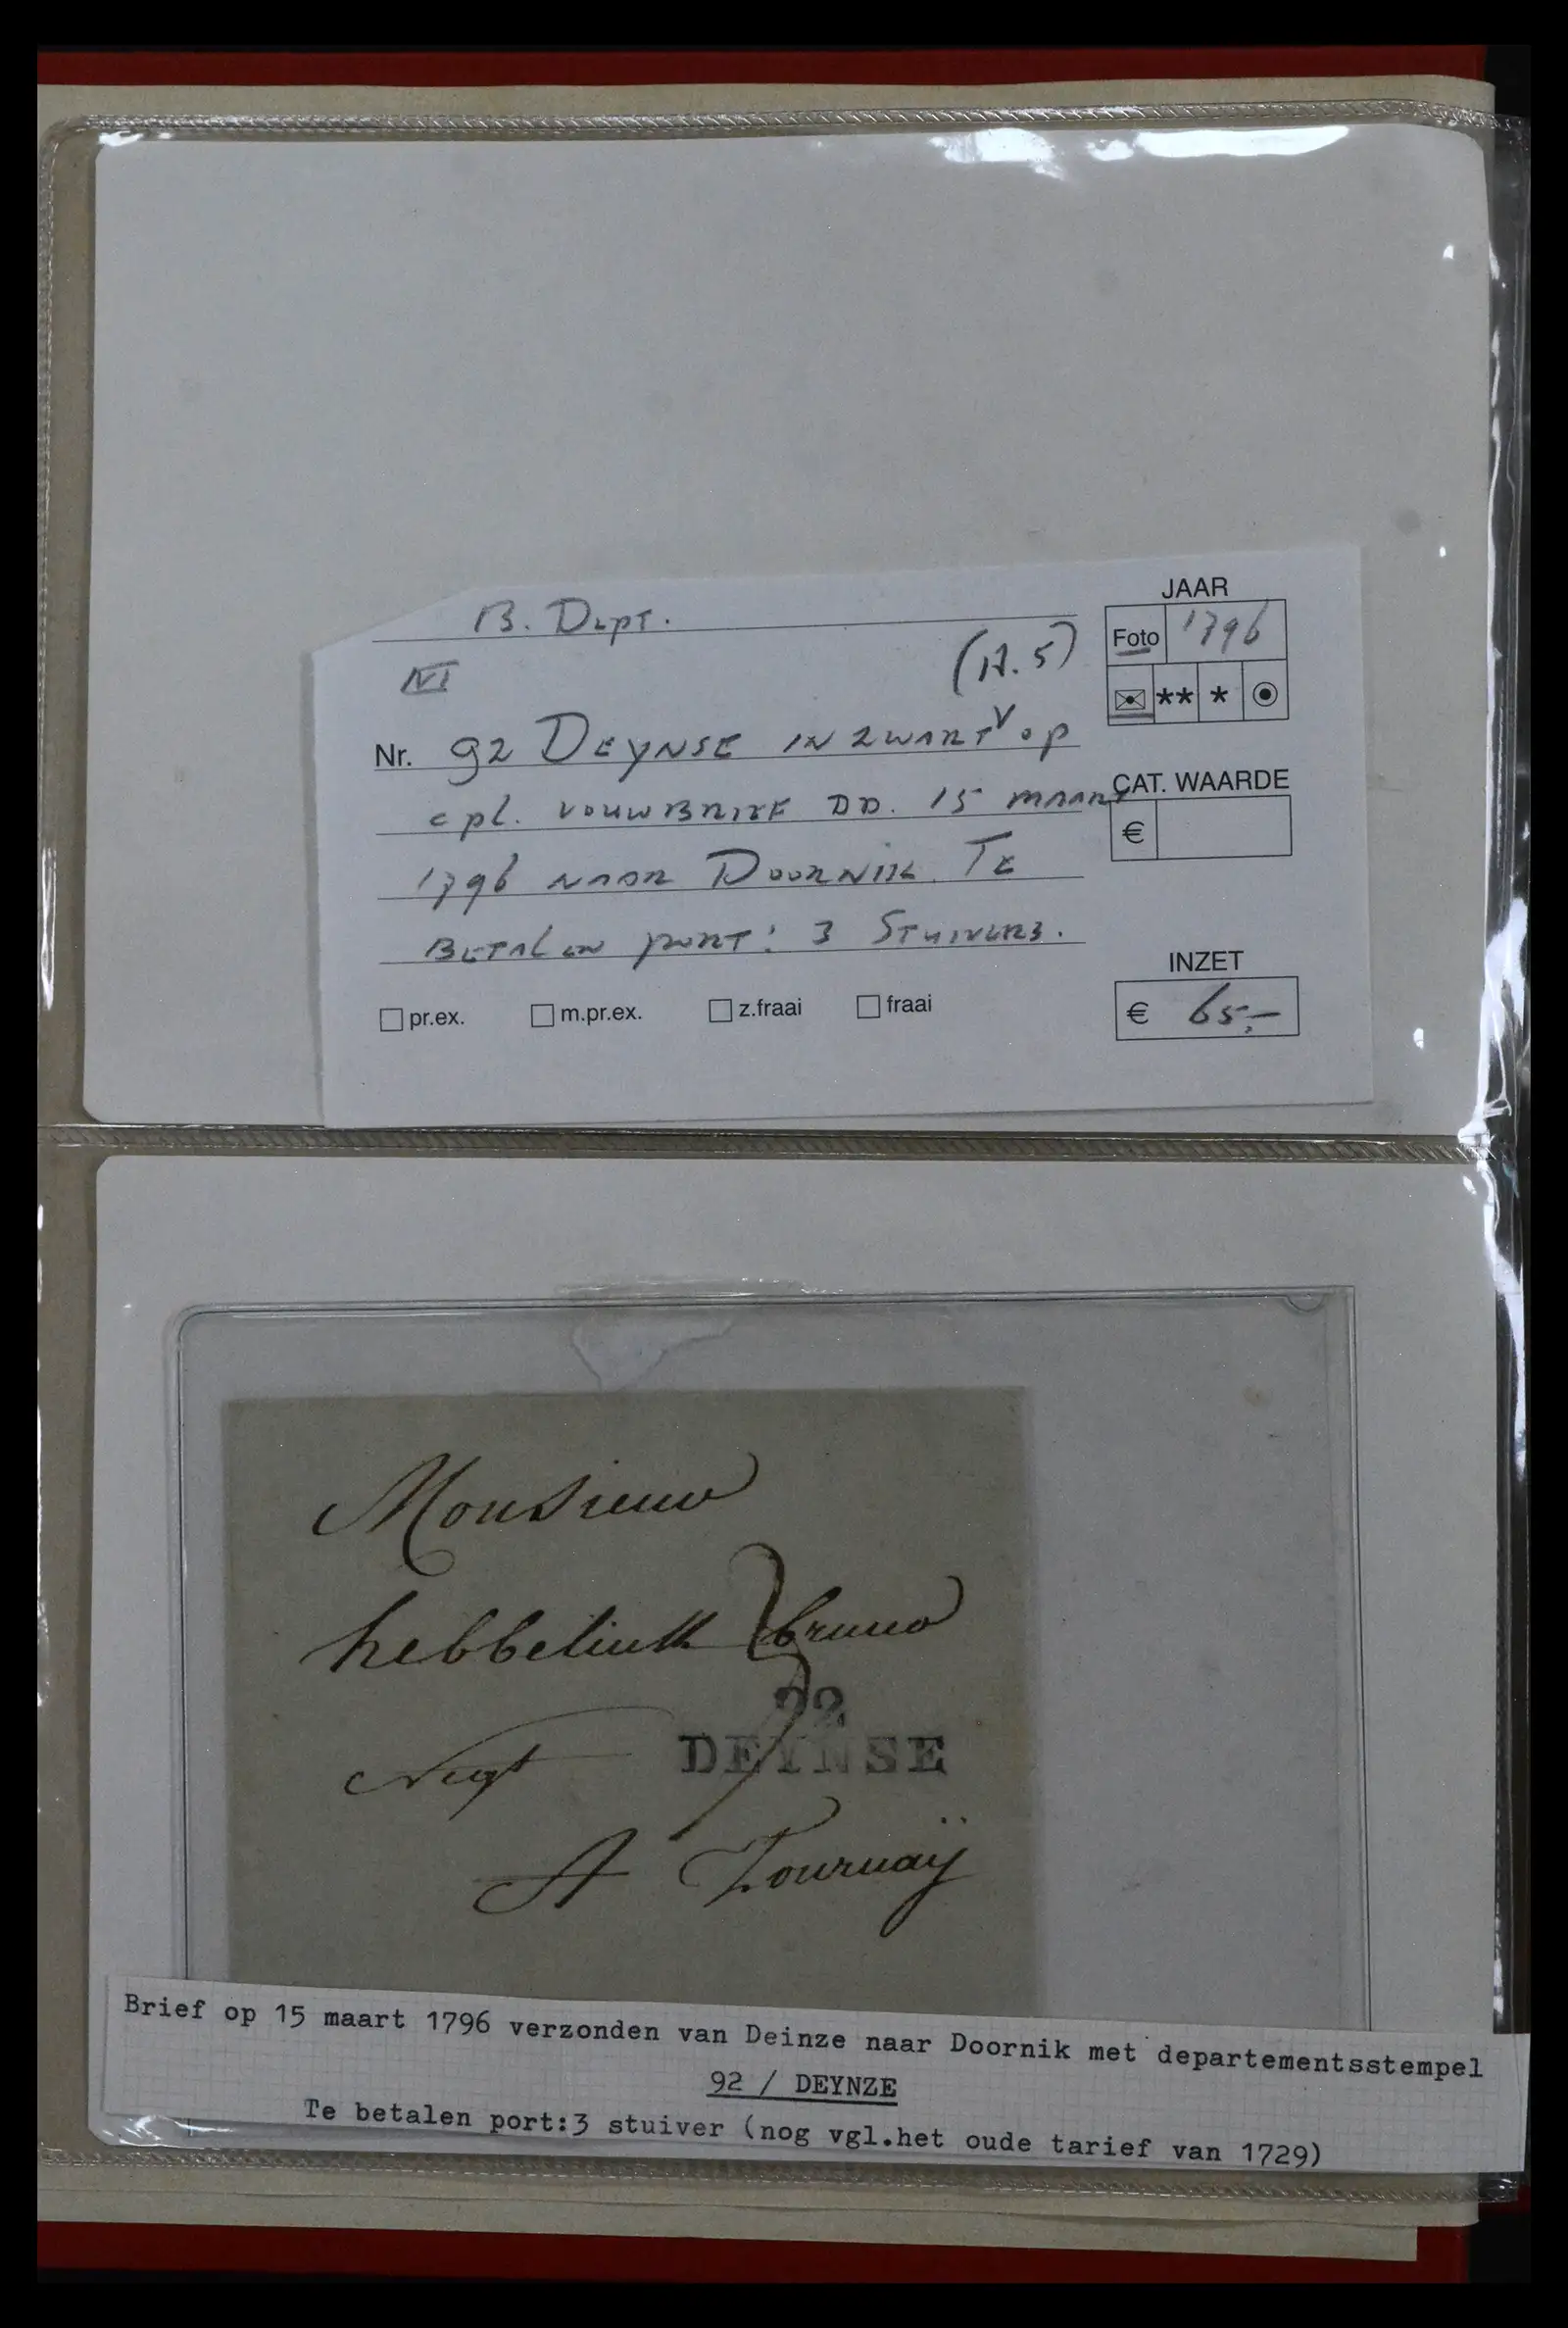 B. Dept.
JAAR
Foto 1796
VI
(H.5)
** *
Nr. 92 DEYNSE IN ZWART V op
cpl. VOUWBRIEF DD. 15 MAART
CAT. WAARDE
€
1796 NAAR DOORNIK. TE
BETALEN PORT: 3 STUIVERS.
INZET
€ 65,-
pr.ex. m.pr.ex. z.fraai fraai
Monsieur
hebbelinck bruno
3
92
DEYNSE
Negt
A Tournaÿ
Brief op 15 maart 1796 verzonden van Deinze naar Doornik met departementsstempel
92 / DEYNZE
Te betalen port:3 stuiver (nog vgl.het oude tarief van 1729)